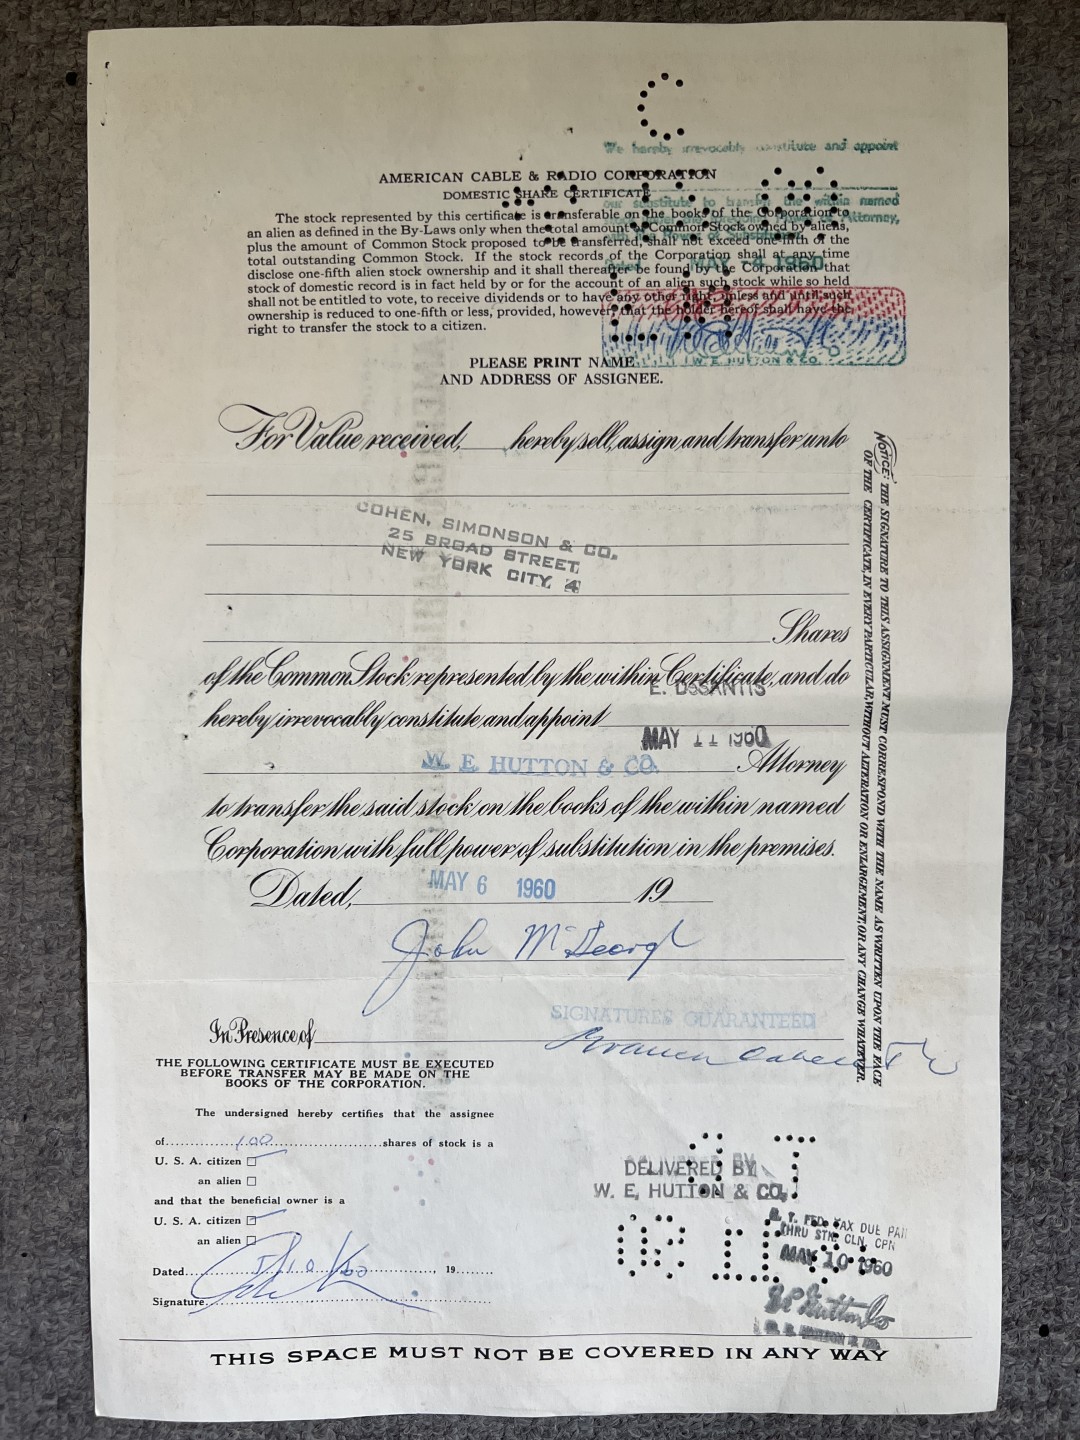 We hereby irrevocably constitute and appoint
AMERICAN CABLE & RADIO CORPORATION
DOMESTIC SHARE CERTIFICATE
our substitute to transfer the within named
Attorney,
The stock represented by this certificate is transferable on the books of the Corporation to
an alien as defined in the By-Laws only when the total amount of Common Stock owned by aliens,
plus the amount of Common Stock proposed to be transferred, shall not exceed one-fifth of the
total outstanding Common Stock. If the stock records of the Corporation shall at any time
disclose one-fifth alien stock ownership and it shall thereafter be found by the Corporation that
stock of domestic record is in fact held by or for the account of an alien such stock while so held
shall not be entitled to vote, to receive dividends or to have any other right, unless and until such
ownership is reduced to one-fifth or less, provided, however, that the holder hereof shall have the
right to transfer the stock to a citizen.
Dated MAY -4 1960
W. E. HUTTON & CO.
PLEASE PRINT NAME
AND ADDRESS OF ASSIGNEE.
For Value received, hereby sell, assign and transfer unto
COHEN, SIMONSON & CO.
25 BROAD STREET,
NEW YORK CITY, 4
Shares
of the Common Stock represented by the within Certificate, and do
E. DeSANTIS
hereby irrevocably constitute and appoint
MAY 11 1960
W. E. HUTTON & CO. Attorney
to transfer the said stock on the books of the within named
Corporation with full power of substitution in the premises.
Dated, MAY 6 1960 19
John McGeorge
SIGNATURES GUARANTEED
In Presence of
THE FOLLOWING CERTIFICATE MUST BE EXECUTED
BEFORE TRANSFER MAY BE MADE ON THE
BOOKS OF THE CORPORATION.
The undersigned hereby certifies that the assignee
of 100 shares of stock is a
U. S. A. citizen
an alien
and that the beneficial owner is a
U. S. A. citizen
an alien
Dated 5/10/60, 19
Signature
NOTICE: THE SIGNATURE TO THIS ASSIGNMENT MUST CORRESPOND WITH THE NAME AS WRITTEN UPON THE FACE
OF THE CERTIFICATE, IN EVERY PARTICULAR, WITHOUT ALTERATION OR ENLARGEMENT OR ANY CHANGE WHATEVER.
DELIVERED BY
W. E. HUTTON & CO.
N. Y. FED. TAX DUE PAID
THRU STK. CLN. CPN
MAY 10 1960
THIS SPACE MUST NOT BE COVERED IN ANY WAY